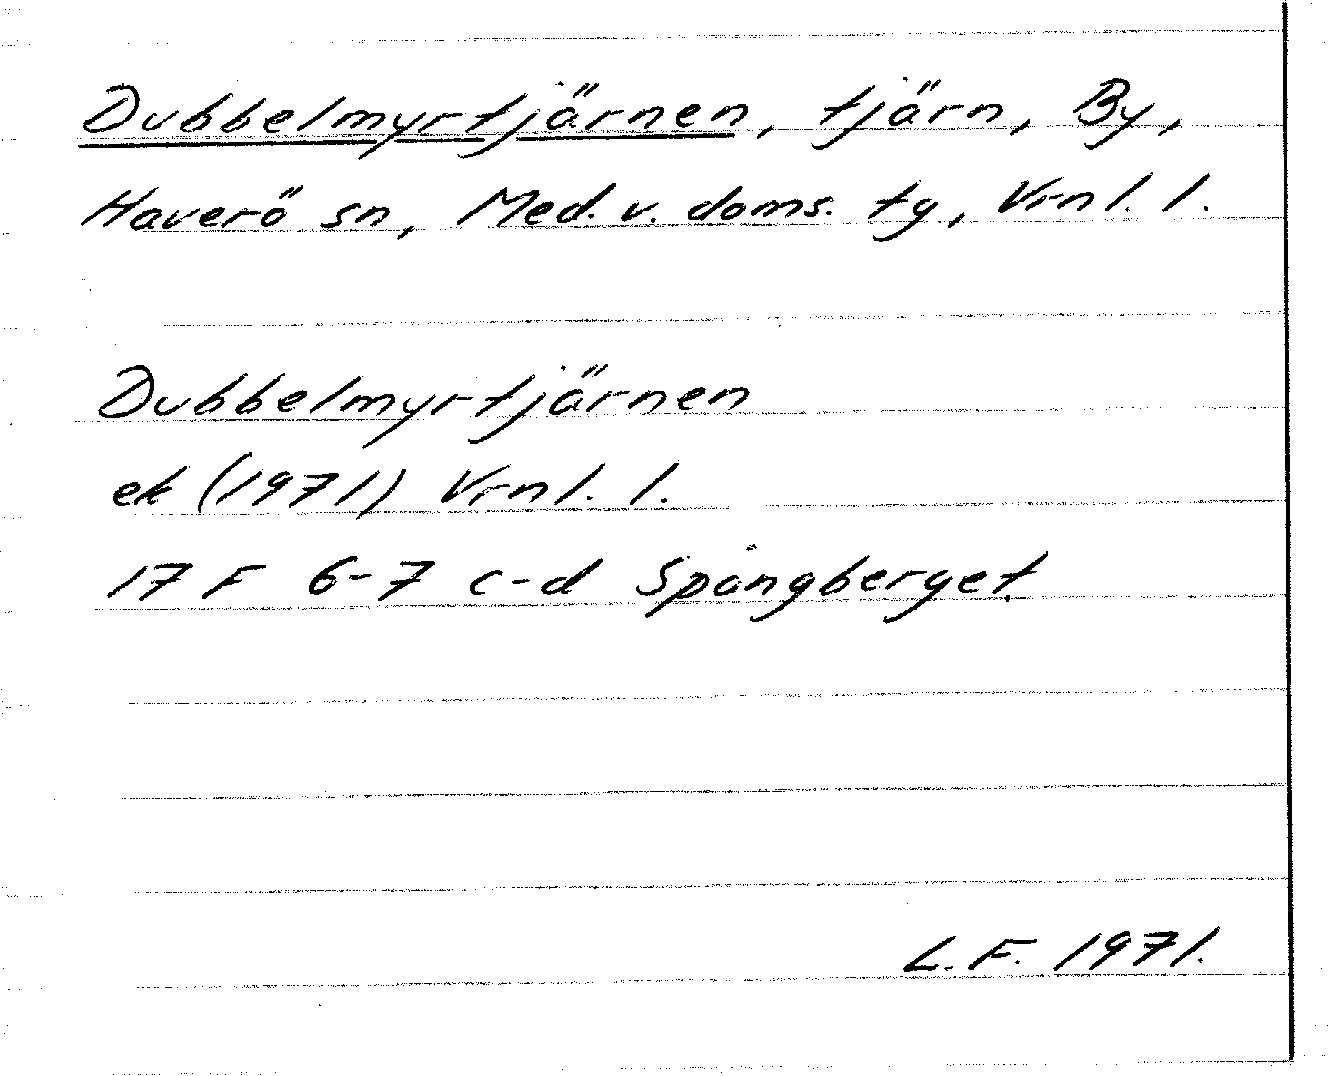 Dubbelmyrtjärnen, tjärn, By,
Haverö sn, Med. v. doms. tg, Vrnl. l.
Dubbelmyrtjärnen
ek (1971) Vrnl. l.
17 F 6-7 c-d Spångberget.
L. F. 1971.